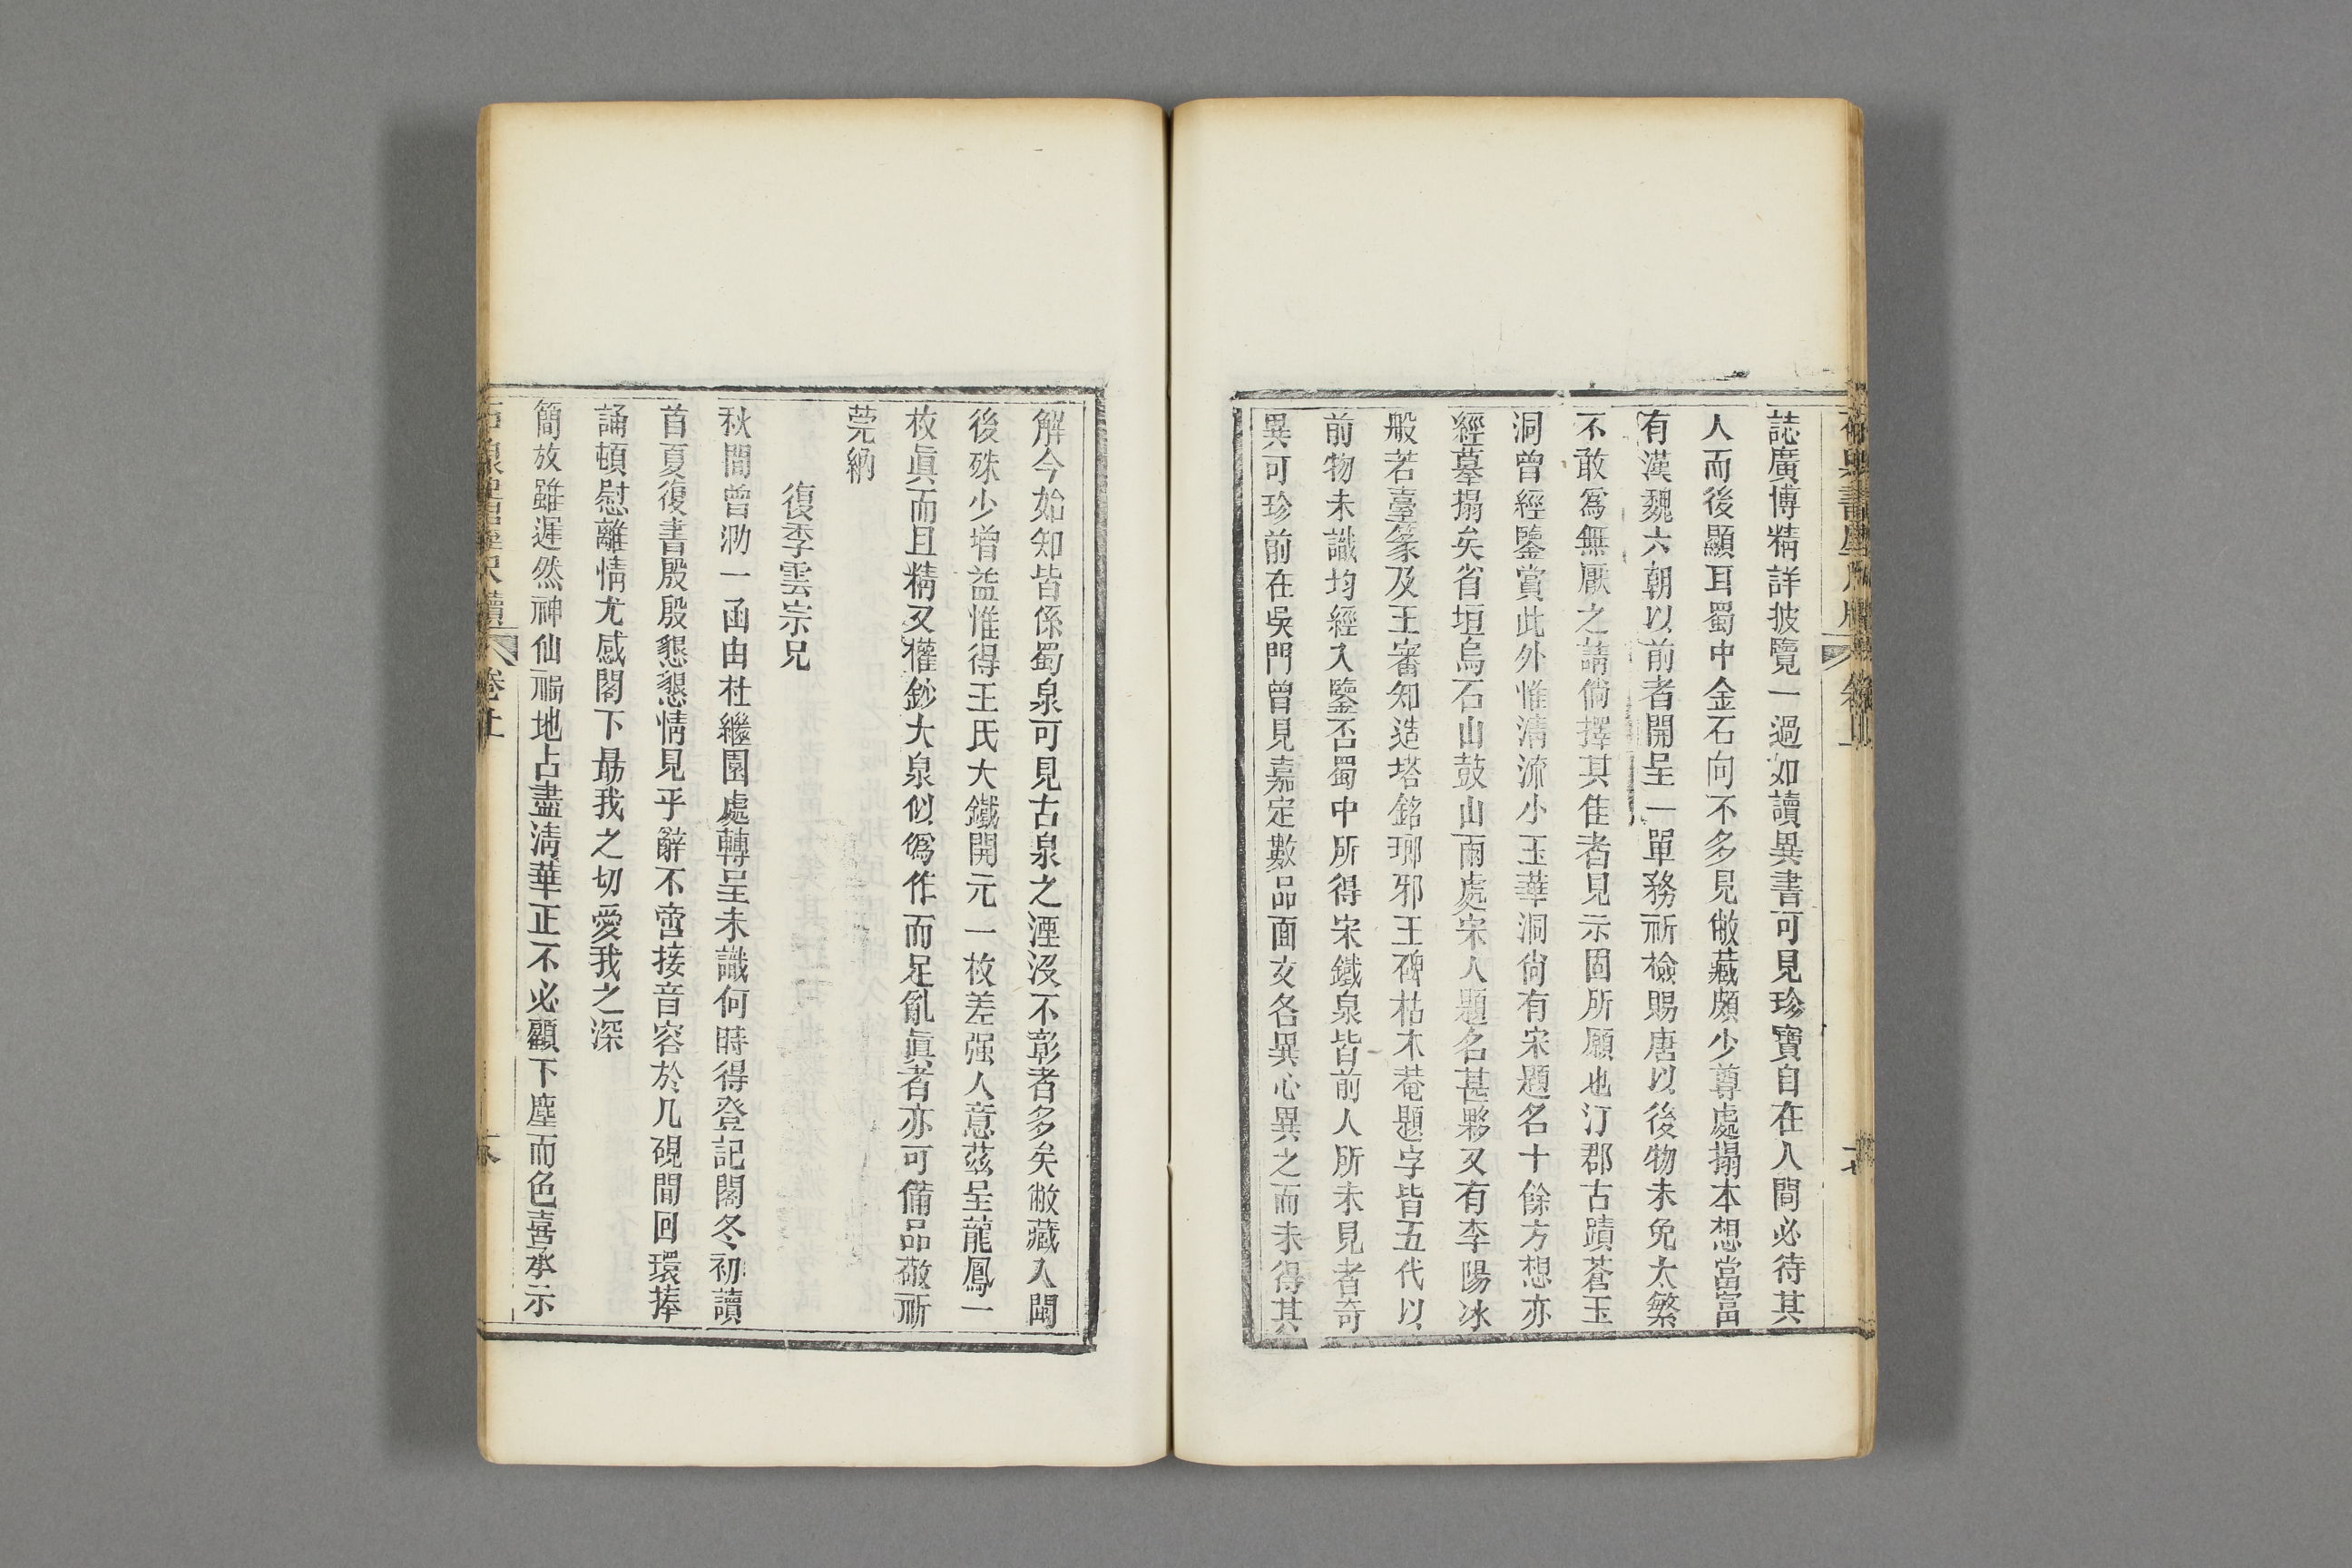 誌廣博精詳披覽一過如讀異書可見珍寶自在人間必待其
人而後顯耳蜀中金石向不多見敝藏頗少尊處搨本想當富
有漢魏六朝以前者開呈一單務祈檢賜唐以後物未免太繁
不敢爲無厭之請倘擇其佳者見示固所願也汀郡古蹟蒼玉
洞曾經鑒賞此外惟清流小玉華洞尙有宋題名十餘方想亦
經摹搨矣省垣烏石山鼓山兩處宋人題名甚夥又有李陽冰
般若臺篆及王審知造塔銘琊邪王碑枯木菴題字皆五代以
前物未識均經入鑒否蜀中所得宋鐵泉皆前人所未見者奇
異可珍前在吳門曾見嘉定數品面文各異心異之而未得其
解今始知皆係蜀泉可見古泉之湮沒不彰者多矣敝藏入閩
後殊少增益惟得王氏大鐵開元一枚差强人意茲呈龍鳳一
枚眞而且精又權鈔大泉似僞作而足亂眞者亦可備品敬祈
莞納
復季雲宗兄
秋間曾泐一函由杜繼園處轉呈未識何時得登記閣冬初讀
首夏復書殷殷懇懇情見乎辭不啻接音容於几硯間回環捧
誦頓慰離情尤感閣下勗我之切愛我之深
簡放雖遲然神仙福地占盡淸華正不必顧下塵而色喜承示
卷上